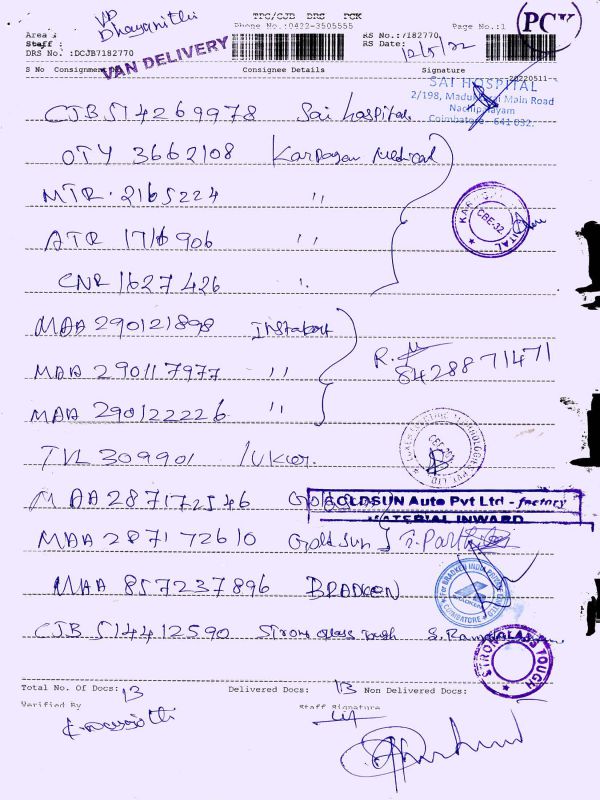 VD
Dhayanithi
TPC/CJB DRS PCK
Phone No.:0422-3505555
Page No.:1
(PCK)
Area :
Staff :
DRS No.:DCJB7182770
VAN DELIVERY
RS No.:7182770
RS Date: 12/5/22
S No Consignment Consignee Details Signature
20220511
SAI HOSPITAL
2/198, Main Road
Coimbatore - 641 032.
CJB 514269978 Sai hospital
OTY 3662108 Karpagam Medical
MTR 2165224 "
ATR 1716906 "
CNR 1627426 "
CBE-32.
MAA 290121898 Instakart
MAA 290117977 "
MAA 290122226 "
R.
8428871471
TVL 309901
MAA 287172546
GOLDSUN Auto Pvt Ltd - factory
MATERIAL INWARD
MAA 287172610 Goldsun
MAA 857237896 BRADKEN
For BRADKEN INDIA PRIVATE
COIMBATORE
CJB 514412590 Strong glass tough
STRONGLASS TOUGH
Total No. Of Docs: 13 Delivered Docs: 13 Non Delivered Docs:
Verified By Staff Signature